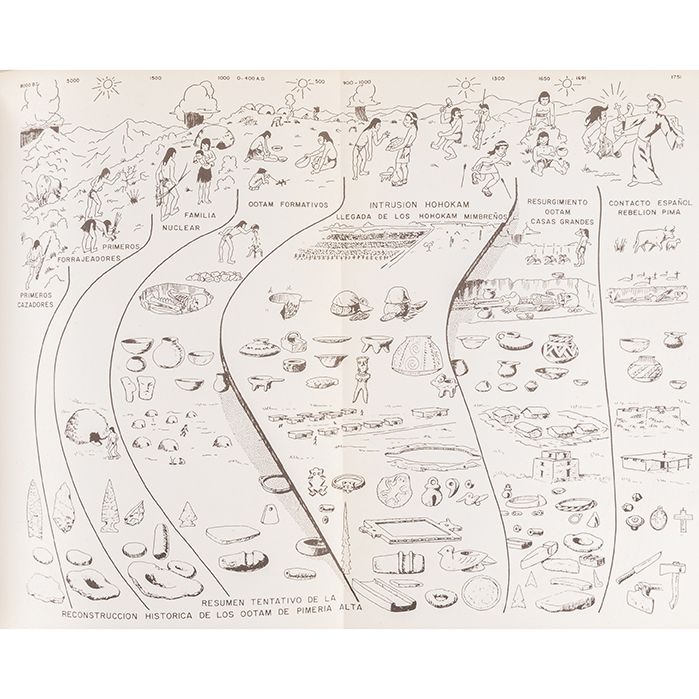 8000 B.C. 5000 1500 1000 0-400 A.D. 500 900-1000 1300 1650 1691 1751
PRIMEROS
CAZADORES
PRIMEROS
FORRAJEADORES
FAMILIA
NUCLEAR
OOTAM FORMATIVOS
INTRUSION HOHOKAM
LLEGADA DE LOS HOHOKAM MIMBREÑOS
RESURGIMIENTO
OOTAM
CASAS GRANDES
CONTACTO ESPAÑOL
REBELION PIMA
RESUMEN TENTATIVO DE LA
RECONSTRUCCION HISTORICA DE LOS OOTAM DE PIMERIA ALTA